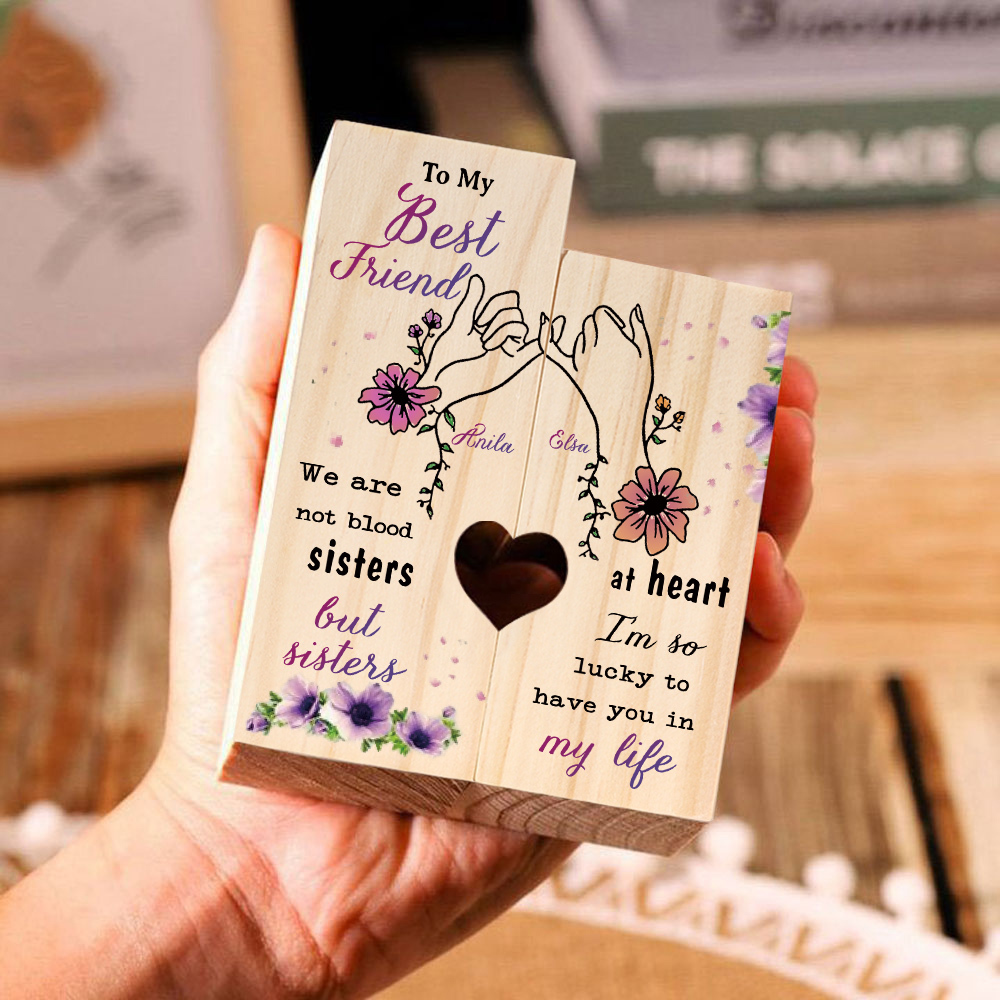 To My
Best
Friend
Anila
Elsa
We are
not blood
sisters
but
sisters
at heart
I'm so
lucky to
have you in
my life
THE SOLACE